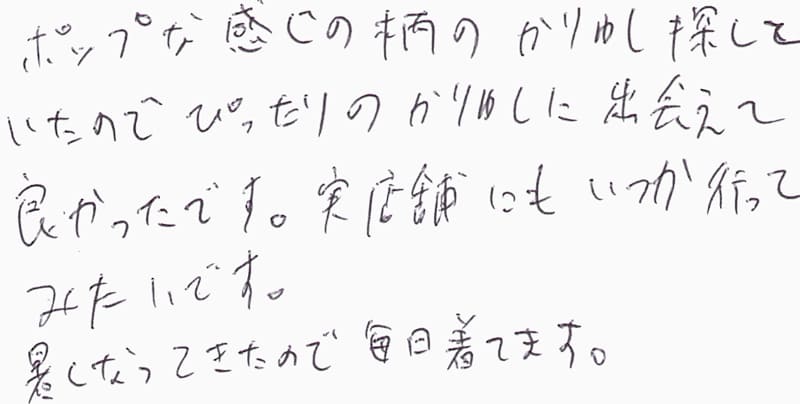 ポップな感じの柄のかりゆし探して
いたのでぴったりのかりゆしに出会えて
良かったです。実店舗にもいつか行って
みたいです。
暑くなってきたので毎日着てます。